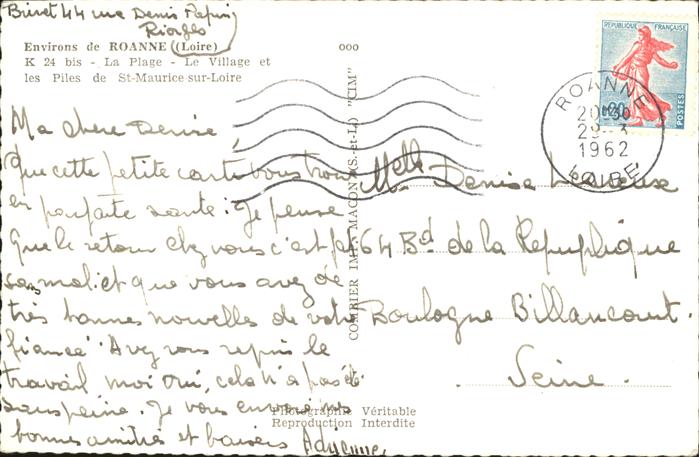 Biret 44 rue Denis Papin
Riorges
Environs de ROANNE (Loire)
K 24 bis - La Plage - Le Village et
les Piles de St-Maurice-sur-Loire
ooo
REPUBLIQUE FRANÇAISE
0.20
POSTES
ROANNE
20H30
29-3
1962
LOIRE
COMBIER IMP. MACON (S.-et-L.) "CIM"
Ma chère Denise
Que cette petite carte vous trouve
en parfaite santé. Je pense
que le retour chez vous c'est fait
sans mal. et que vous avez de
très bonnes nouvelles de votre
fiancé. Avez vous repris le
travail moi oui, cela n'a pas été
sans peine. Je vous envoie mes
bonnes amitiés et baisers Adrienne
Melle Denise
64 Bd de la République
Boulogne Billancourt
Seine.
Photographie Véritable
Reproduction Interdite